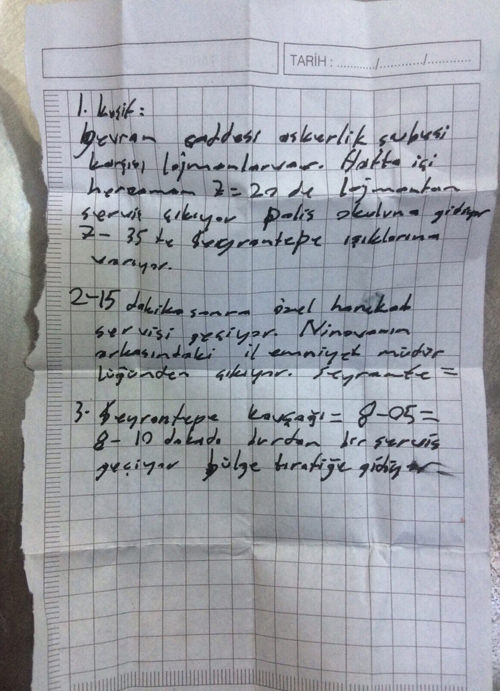 TARİH : ........../............/............
1. Keşif:
gevran caddesi askerlik şubesi
karşısı lojmanlarvar. Hafta içi
herzaman 7=20 de lojmantan
servis çıkıyor polis okuluna gidiyor
7-35 te Şeyrantepe ışıklarına
varıyor.
2-15 dakika sonra özel harekat
servisi geçiyor. Ninovanın
arkasındaki il emniyet müdür
lüğünden çıkıyor. Seyramte=
3- Şeyrantepe kavşağı= 8-05=
8-10 dakada durdan bir servis
geçiyor bölge tıratiğe gidiyor